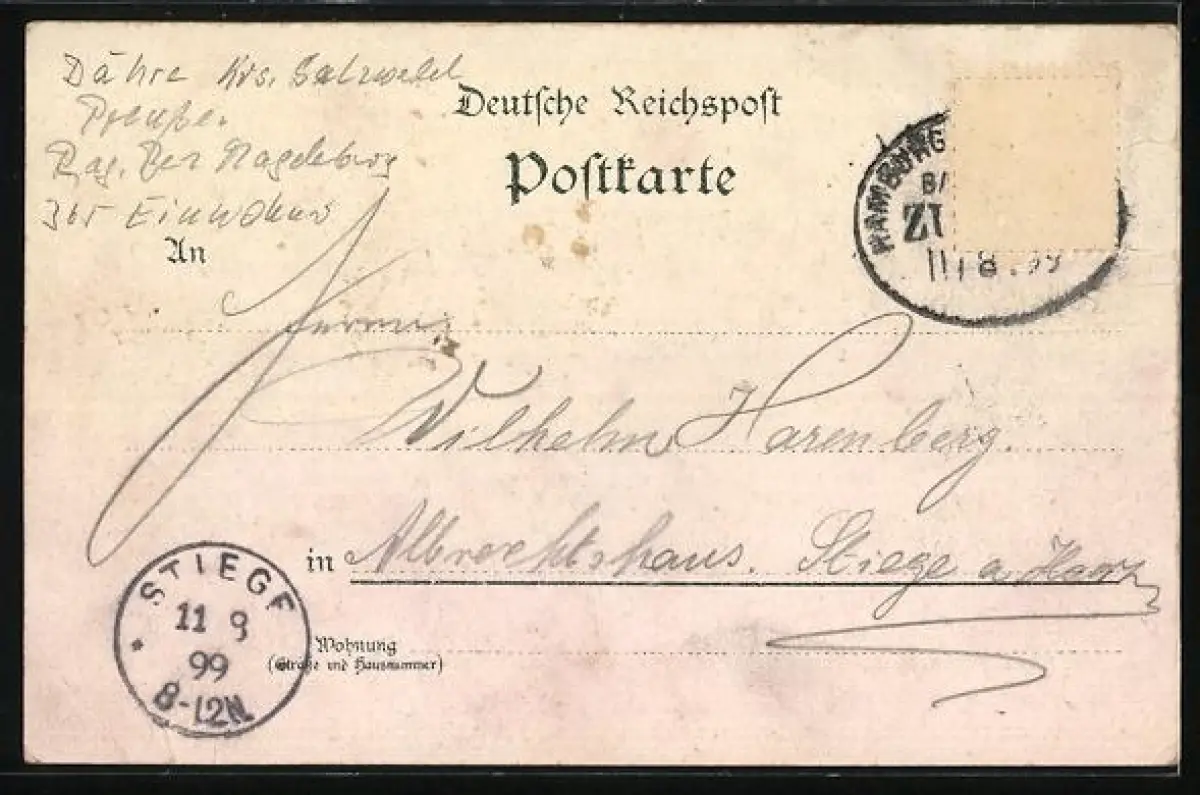 Dähre Krs. Salzwedel
Preußen
Reg. Bez Magdeburg
365 Einwohner
Deutsche Reichspost
Postkarte
HAMBURG
ZU
8.99
An
Herrn
Wilhelm Harenberg.
in Albrechtshaus. Stiege a. Harz
Wohnung
(Straße und Hausnummer)
STIEGE
11 9
99
8-12N.